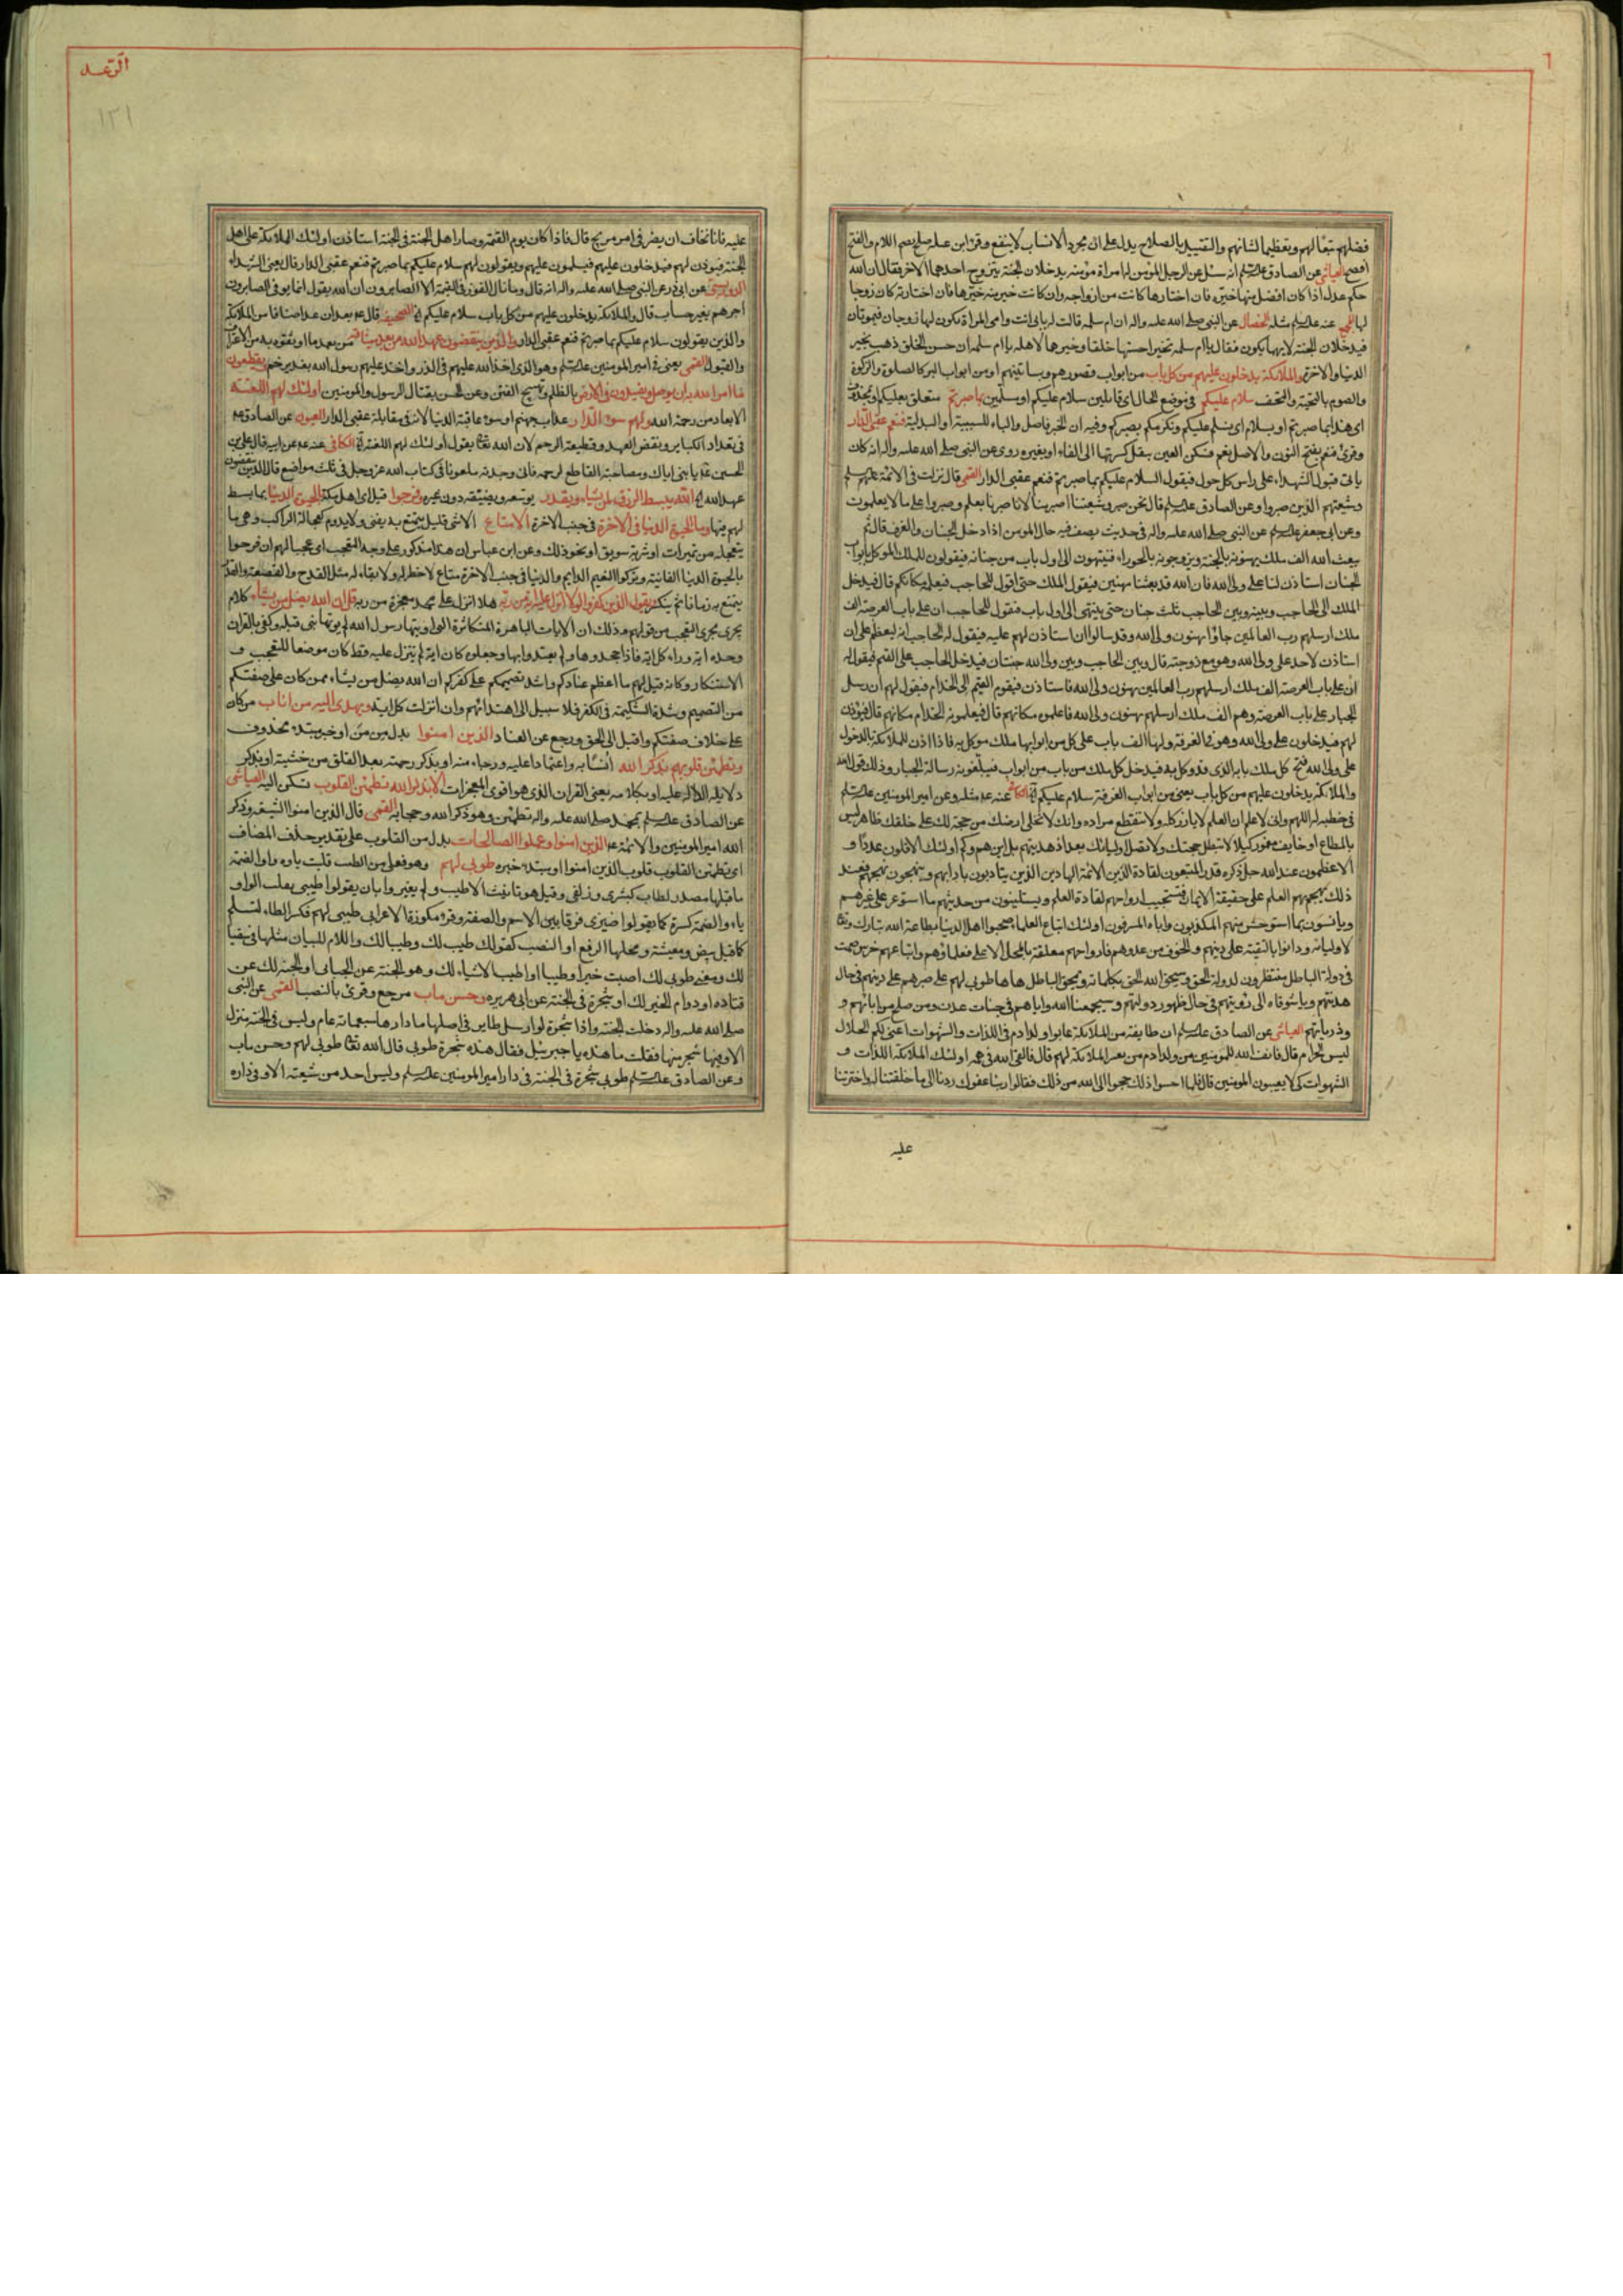 فضلهم تبعا لهم وتعظيما لشانهم والتقييد بالصلاح يدل على ان مجرد الانساب لا ينفع وقرا ابن عبله صلح بضم اللام والفتح
افصح العياشى عن الصادق انه سئل عن الرجل المؤمن له امراة مؤمنة يدخلان الجنة يتزوج احدهما الاخر فقال ان الله
حكم عدل اذا كان افضل منها خيره فان اختارها كانت من ازواجه وان كانت خيرا منه خيرها فان اختارته كان زوجا
لها عنه مثله الخصال عن النبى صلى الله عليه واله ان ام سلمه قالت له بابى انت وامى المراة يكون لها زوجان فيموتان
فيدخلان الجنة لايهما يكون فقال يا ام سلمه تخير احسنهما خلقا وخيرهما لاهله يا ام سلمه ان حسن الخلق ذهب بخير
الدنيا والاخرة والملائكة يدخلون عليهم من كل باب من ابواب قصورهم وبساتينهم او من ابواب البر كالصلوة والزكوة
والصوم بالتحية والتحف سلام عليكم فى موضع الحال اى قائلين سلام عليكم او مسلمين بما صبرتم متعلق بعليكم او بمحذوف
اى هذا بما صبرتم او بسلام اى نسلم عليكم ونكرمكم بصبركم وفيه ان الخبر فاصل والباء للسببية او البدلية فنعم عقبى الدار
وقرئ فنعم بفتح النون والاصل نعم فسكن العين بنقل كسرتها الى الفاء او بغيره روى عن النبى صلى الله عليه واله انه كان
ياتى قبور الشهداء على راس كل حول فيقول السلام عليكم بما صبرتم فنعم عقبى الدار القمى قال نزلت فى الائمة
وشيعتهم الذين صبروا وعن الصادق قال نحن صبر وشيعتنا اصبر منا لانا صبرنا بعلم وصبروا على ما لا يعلمون
وعن ابى جعفر عن النبى صلى الله عليه واله فى حديث يصف فيه حال المؤمن اذا دخل الجنان والغرف قال ثم
يبعث الله الف ملك يهنونه بالجنة ويزوجونه بالحوراء فينتهون الى اول باب من جنانه فيقولون للملك الموكل بابواب
الجنان استاذن لنا على ولى الله فان الله قد بعثنا مهنين فيقول الملك حتى اقول للحاجب فيعلمه مكانكم قال فيدخل
الملك الى الحاجب وبينه وبين الحاجب ثلث جنان حتى ينتهى الى اول باب فيقول للحاجب ان على باب العرصة الف
ملك ارسلهم رب العالمين جاؤا يهنون ولى الله وقد سالوا ان استاذن لهم عليه فيقول له الحاجب انه ليعظم على ان
استاذن لاحد على ولى الله وهو مع زوجته قال وبين الحاجب وبين ولى الله جنتان فيدخل الحاجب على القيم فيقول له
ان على باب العرصة الف ملك ارسلهم رب العالمين يهنون ولى الله فاستاذن فيقوم القيم الى الخدام فيقول لهم ان رسل
الجبار على باب العرصة وهم الف ملك ارسلهم يهنون ولى الله فاعلموه مكانهم قال فيعلمونه الخدام مكانهم قال فيؤذن
لهم فيدخلون على ولى الله وهو فى الغرفة ولها الف باب على كل من ابوابها ملك موكل به فاذا اذن للملائكة بالدخول
على ولى الله فتح كل ملك بابه الذى قد وكل به فيدخل كل ملك من باب من ابواب فيبلغونه رسالة الجبار وذلك قول الله
والملائكة يدخلون عليهم من كل باب يعنى من ابواب الغرفة سلام عليكم عنه مثله وعن امير المؤمنين
فى خطبة له اللهم وانى لاعلم ان العلم لا يازر كله ولا ينقطع مراده وانك لا تخلى ارضك من حجة لك على خلقك ظاهر ليس
بالمطاع او خائف مغمور كيلا تبطل حجتك ولا تضل اوليائك بعد اذ هديتهم بل اين هم وكم اولئك الاقلون عددا و
الاعظمون عند الله جل ذكره قدرا المتبعون لقادة الدين الائمة الهادين الذين يتادبون بادابهم وينهجون نهجهم فعند
ذلك يهجم بهم العلم على حقيقة الايمان فتستجيب ارواحهم لقادة العلم ويستلينون من حديثهم ما استوعر على غيرهم
ويانسون بما استوحش منهم المكذبون واباه المسرفون اولئك اتباع العلماء صحبوا اهل الدنيا بطاعة الله تبارك وتعا
لاوليائه ودانوا بالتقية على دينهم والخوف من عدوهم فارواحهم معلقة بالمحل الاعلى فعلماؤهم واتباعهم خرس صمت
فى دولة الباطل منتظرون لدولة الحق وسيحق الله الحق بكلماته ويمحق الباطل ها ها طوبى لهم على صبرهم على دينهم فى حال
هدنتهم ويا شوقاه الى رؤيتهم فى حال ظهور دولتهم وسيجمعنا الله واياهم فى جنات عدن ومن صلح من ابائهم و
وذرياتهم العياشى عن الصادق ان طايفة من الملائكة عابوا ولد ادم فى اللذات والشهوات اعنى لكم الحلال
ليس الحرام قال فانف الله للمؤمنين من ولد ادم من تعيير الملائكة لهم قال فالقى الله فى همم اولئك الملائكة اللذات و
الشهوات كى لا يعيبون المؤمنين قال فلما احسوا ذلك عجوا الى الله من ذلك فقالوا ربنا عفوك ردنا الى ما خلقتنا له واخترتنا
عليه
الرعد
١٢١
عليه فانا نخاف ان يصير فى امر مريج قال فاذا كان يوم القيمة وصار اهل الجنة فى الجنة استاذن اولئك الملائكة على اهل
الجنة فيؤذن لهم فيدخلون عليهم فيسلمون عليهم ويقولون لهم سلام عليكم بما صبرتم فنعم عقبى الدار قال يعنى الشهداء
عن ابى ذر عن النبى صلى الله عليه واله انه قال وما نال الفوز فى القيمة الا الصابرون ان الله يقول انما يوفى الصابرون
اجرهم بغير حساب قال والملائكة يدخلون عليهم من كل باب سلام عليكم
والذين يقولون سلام عليكم بما صبرتم فنعم عقبى الدار والذين ينقضون عهد الله من بعد ميثاقه من بعد ما اوثقوه به من الاقرار
والقبول القمى يعنى فى امير المؤمنين وهو الذى اخذ الله عليهم فى الذر واخذ عليهم رسول الله بغدير خم ويقطعون
ما امر الله به ان يوصل ويفسدون فى الارض بالظلم وتهييج الفتن وعن الحسن بقتال الرسول والمؤمنين اولئك لهم اللعنة
الابعاد من رحمة الله ولهم سوء الدار عذاب جهنم او سوء عاقبة الدنيا لانه فى مقابلة عقبى الدار العيون عن الصادق
فى تعداد الكباير ونقض العهد وقطيعة الرحم لان الله تعا يقول اولئك لهم اللعنة الكافى عنه عن ابيه قال على بن
الحسين يا بنى اياك ومصاحبة القاطع لرحمه فانى وجدته ملعونا فى كتاب الله عز وجل فى ثلث مواضع قال الذين ينقضون
عهد الله الله يبسط الرزق لمن يشاء ويقدر يوسعه ويضيقه دون غيره وفرحوا قيل اى اهل مكة بالحيوة الدنيا بما بسط
لهم منها وما الحيوة الدنيا فى الاخرة فى جنب الاخرة الا متاع الا شئ قليل يتمتع به يفنى ولا يدوم كعجالة الراكب وهى ما
يتعجله من تميرات او شربة سويق او نحو ذلك وعن ابن عباس ان هذا مذكور على وجه التعجب اى عجبا لهم ان فرحوا
بالحيوة الدنيا الفانية وتركوا النعيم الدايم والدنيا فى جنب الاخرة متاع لا خطر له ولا بقاء له مثل القدح والقصعة والقدر
يتمتع به زمانا ثم ينكسر ويقول الذين كفروا لولا انزل عليه اية من ربه هلا انزل على محمد معجزة من ربه قل ان الله يضل من يشاء كلام
يجرى مجرى التعجب من قولهم وذلك ان الايات الباهرة المتكاثرة التى اوتيها رسول الله لم يؤتها نبى قبله وكفى بالقران
وحده اية وراء كل اية فاذا جحدوها ولم يعتدوا بها وجعلوه كان اية لم تنزل عليه قط كان موضعا للتعجب و
الاستنكار وكانه قيل لهم ما اعظم عنادكم واشد تصميمكم على كفركم ان الله يضل من يشاء ممن كان على صفتكم
من التصميم وشدة الشكيمة فى الكفر فلا سبيل الى اهتدائهم وان انزلت كل اية ويهدى اليه من اناب من كان
على خلاف صفتكم واقبل الى الحق ورجع عن العناد الذين امنوا بدل من من او خبر مبتدء محذوف
وتطمئن قلوبهم بذكر الله انسا به واعتمادا عليه ورجاء منه او بذكر رحمته بعد القلق من خشيته او بذكر
دلايله الدالة عليه او بكلامه يعنى القران الذى هو اقوى المعجزات الا بذكر الله تطمئن القلوب تسكن اليه العياشى
عن الصادق بمحمد صلى الله عليه واله تطمئن وهو ذكر الله وحجابه القمى قال الذين امنوا الشيعة وذكر
الله امير المؤمنين والائمة الذين امنوا وعملوا الصالحات بدل من القلوب على تقدير حذف المضاف
اى تطمئن القلوب قلوب الذين امنوا او مبتدء خبره طوبى لهم وهو فعلى من الطيب قلبت ياؤه واوا لضمة
ما قبلها مصدر لطاب كبشرى وزلفى وقيل هو تانيث الاطيب ولم يغيروا بان يقولوا طيبى بقلب الواو
ياء والضمة كسرة كما يقولوا ضيزى فرقا بين الاسم والصفة وقرء مكوزة الاعرابى طيبى لهم فكسر الطاء لتسلم
كما قيل بيض ومعيشة ومحلها الرفع او النصب كقولك طيب لك وطيبا لك واللام للبيان مثلها فى سقيا
لك ومعنى طوبى لك اصبت خيرا وطيبا او اطيب الاشياء لك وهو الجنة عن الجبائى او الجنة لك عن
قتاده او دوام الخير لك او شجرة فى الجنة عن ابى هريره وحسن ماب مرجع وقرئ بالنصب القمى عن النبى
صلى الله عليه واله دخلت الجنة واذا شجرة لو ارسل طاير فى اصلها ما دارها سبعمائة عام وليس فى الجنة منزل
الا وفيها شجر منها فقلت ما هذه يا جبرئيل فقال هذه شجرة طوبى قال الله تعا طوبى لهم وحسن ماب
وعن الصادق طوبى شجرة فى الجنة فى دار امير المؤمنين وليس احد من شيعته الا وفى داره